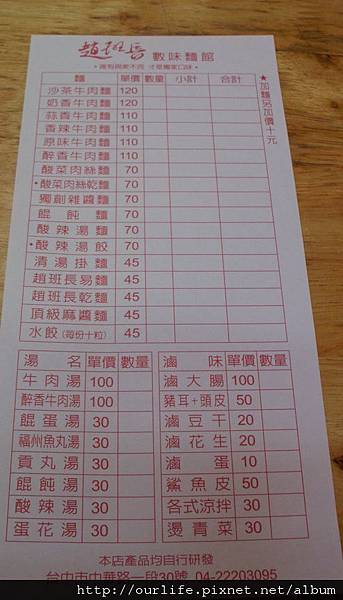 趙班長 數味麵館
麵 單價 數量 小計 合計
沙茶牛肉麵 120
奶香牛肉麵 120
蒜香牛肉麵 110
香辣牛肉麵 110
原味牛肉麵 110
醉香牛肉麵 110
酸菜肉絲麵 70
•酸菜肉絲乾麵 70
獨創雜醬麵 70
餛飩麵 70
酸辣湯麵 70
•酸辣湯餃 70
清湯掛麵 45
趙班長易麵 45
趙班長乾麵 45
頂級麻醬麵 45
水餃(每份十粒) 45
★加麵另加價十元
湯名 單價 數量
牛肉湯 100
醉香牛肉湯 100
餛蛋湯 30
福州魚丸湯 30
貢丸湯 30
餛飩湯 30
酸辣湯 30
蛋花湯 30
滷味 單價 數量
滷大腸 100
豬耳+頭皮 50
滷豆干 20
滷花生 20
滷蛋 10
鯊魚皮 50
各式涼拌 30
燙青菜 30
本店產品均自行研發
台中市中華路一段30號 04-22203095
http://ourlife.pixnet.net/album